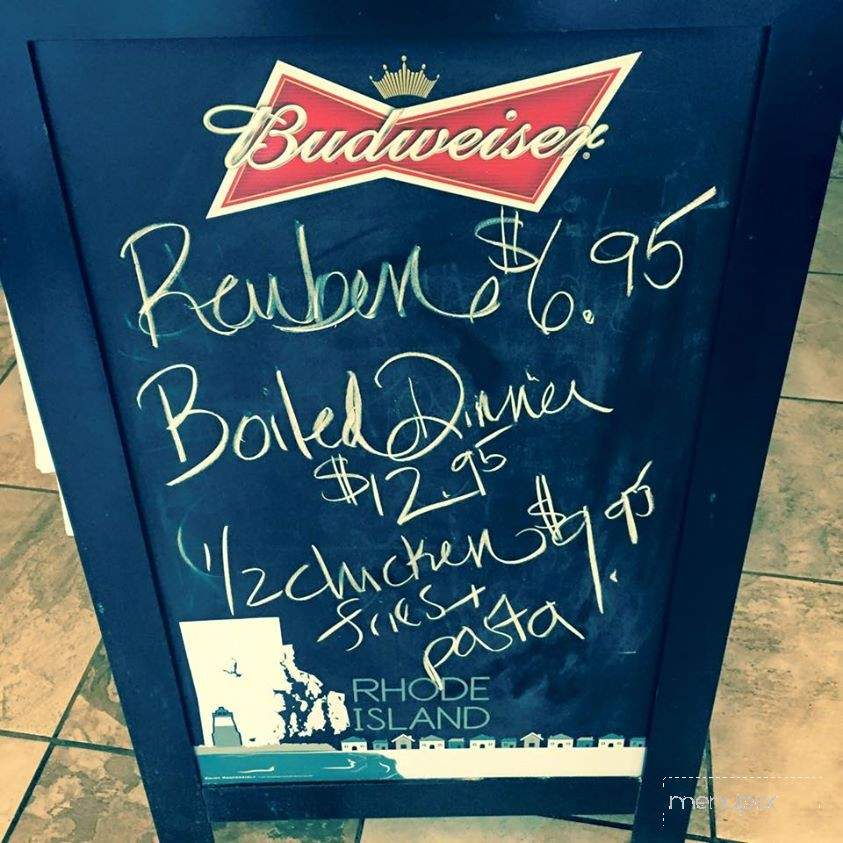 Budweiser
Reuben $6.95
Boiled Dinner
$12.95
1/2 chicken $9.95
fries +
pasta
RHODE
ISLAND